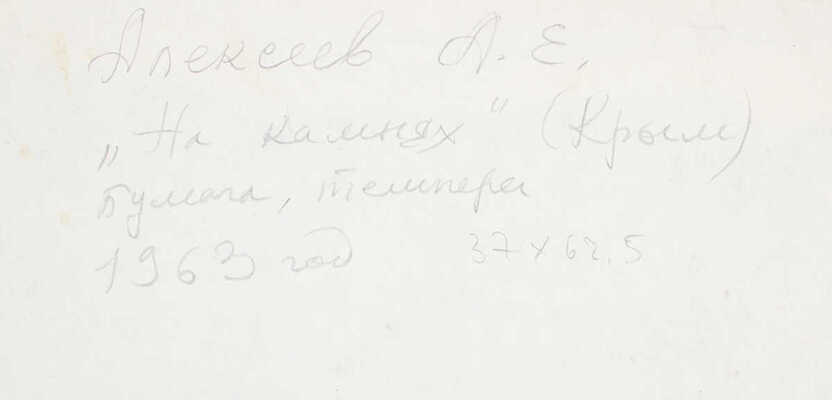 Алексеев А. Е.
„На камнях" (Крым)
бумага, темпера
1963 год 37 x 62.5